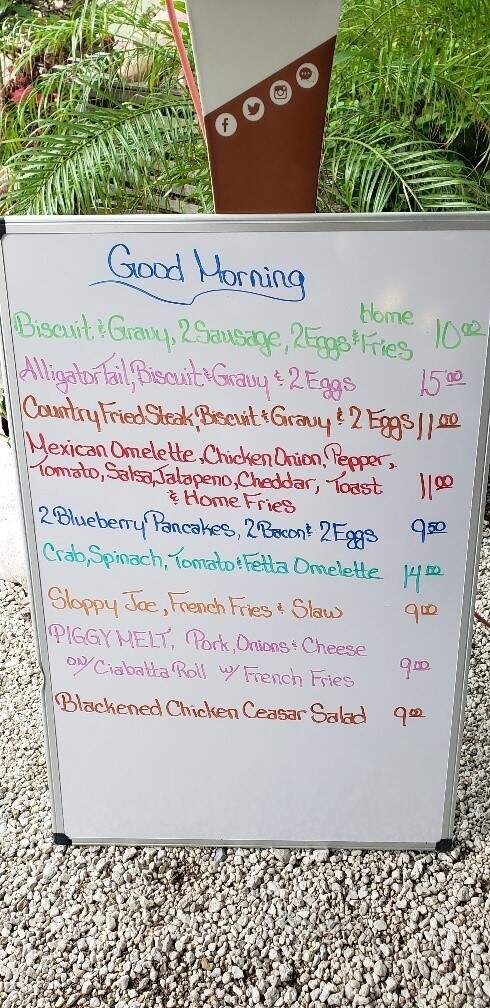 f
Good Morning
Home
Biscuit & Gravy, 2 Sausage, 2 Eggs & Fries 10.00
Alligator Tail, Biscuit & Gravy & 2 Eggs 15.00
Country Fried Steak, Biscuit & Gravy & 2 Eggs 11.00
Mexican Omelette, Chicken Onion, Pepper,
Tomato, Salsa, Jalapeno, Cheddar, Toast 11.00
& Home Fries
2 Blueberry Pancakes, 2 Bacon & 2 Eggs 9.50
Crab, Spinach, Tomato & Fetta Omelette 14.00
Sloppy Joe, French Fries & Slaw 9.00
PIGGY MELT, Pork, Onions & Cheese
on/ Ciabatta Roll w/ French Fries 9.00
Blackened Chicken Ceasar Salad 9.00